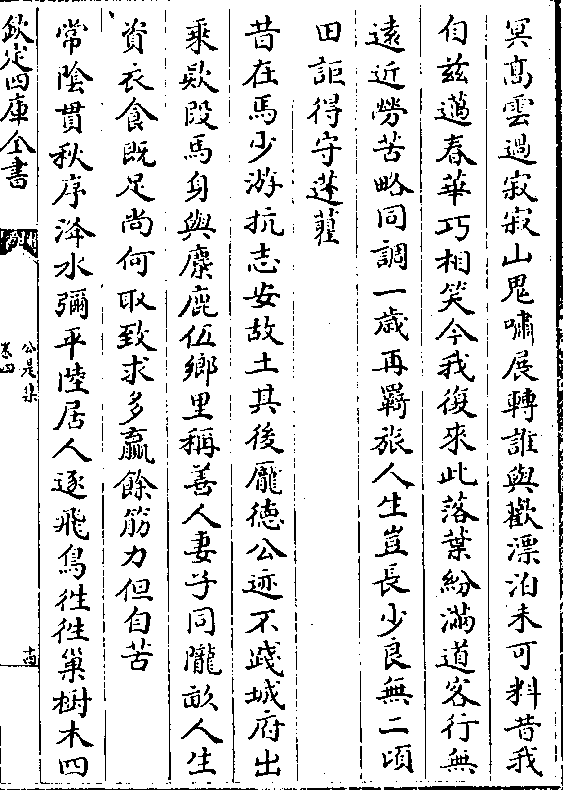 冥髙雲過寂寂山鬼嘯展轉誰與歡漂泊未可料昔我
自兹邁春華巧相笑今我復來此落葉紛滿道客行無
逺近勞苦略同調一歳再羇旅人生豈長少良無二頃
田詎得守蓬藋
昔在馬少游抗志安故土其後龎德公迹不踐城府出
乘欵段馬身與麋鹿伍鄉里稱善人妻子同隴畝人生
資衣食既足尚何取致求多贏餘筋力但自苦
常隂貫秋序洚水彌平陸居人逐飛鳥徃徃巢樹木四
欽定四庫全書
公是集
卷四
十四